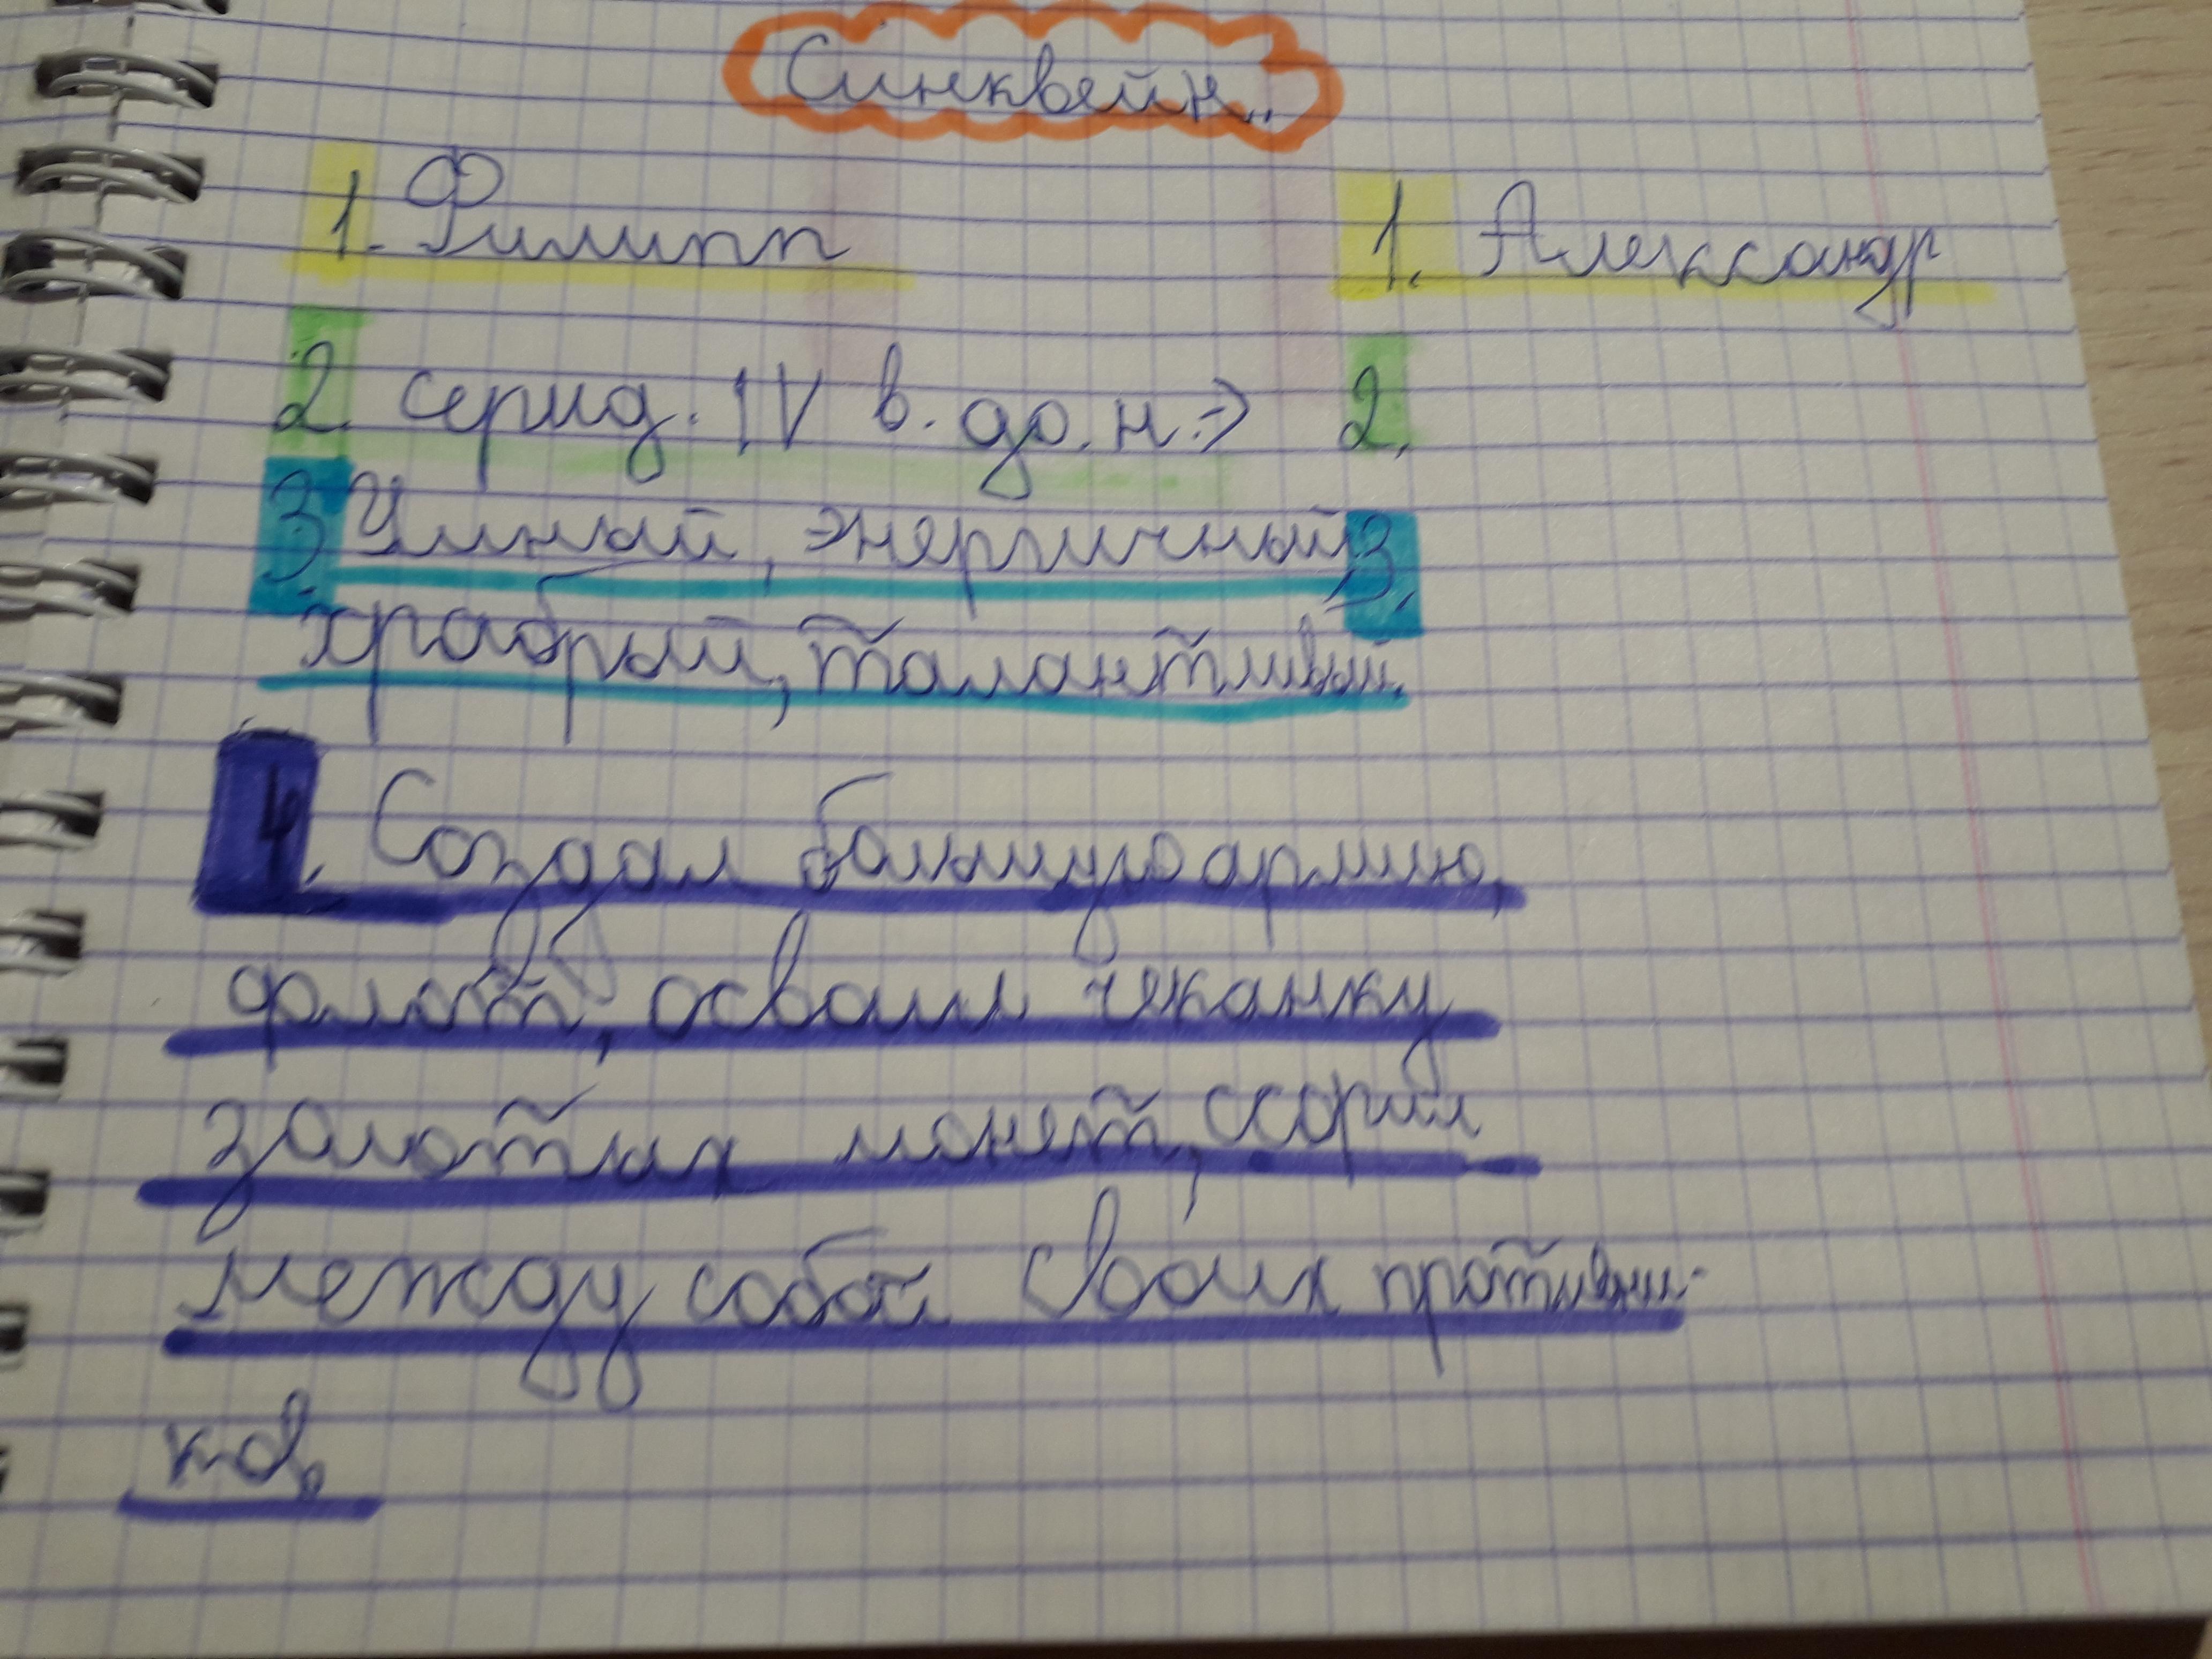 Синквейн.
1. Филипп 1. Александр
2. серид. IV в. до. н. э 2.
3 Умный, энергичный, 3.
храбрый, талантливый.
4. Создал большую армию,
флот, освоил чеканку
золотых монет, ссорил
между собой своих противни-
ков.